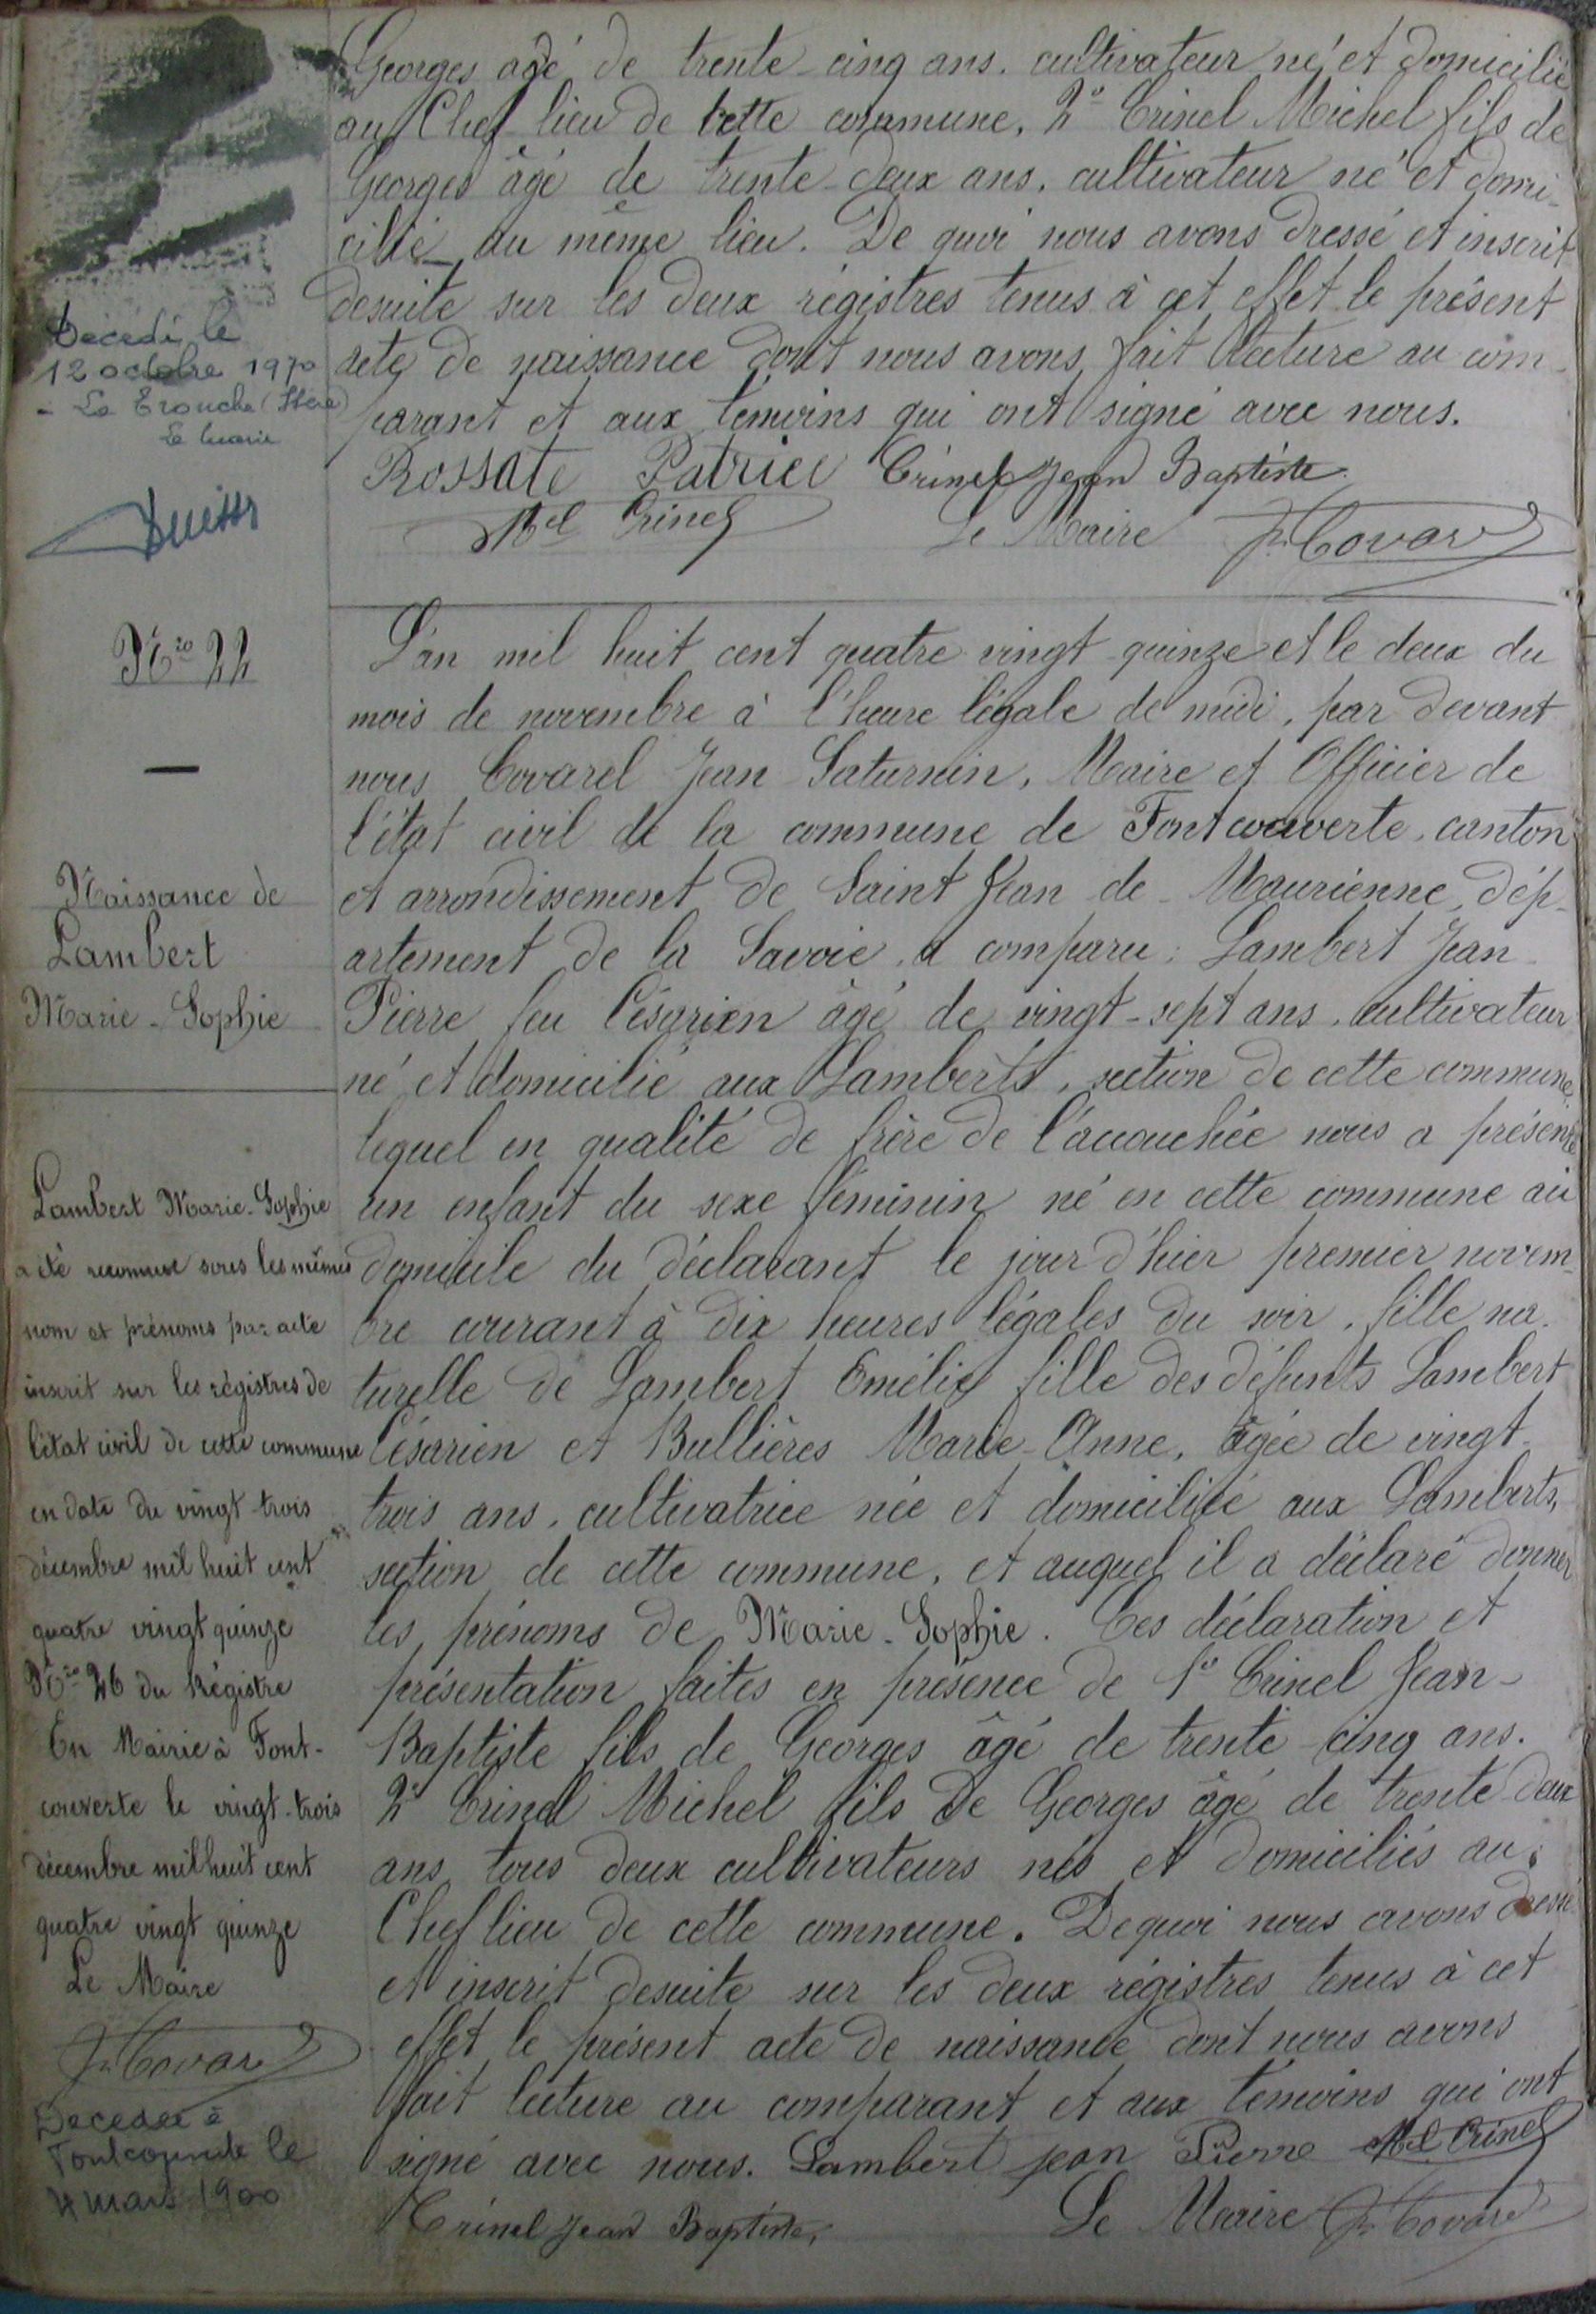 Georges agé de trente-cinq ans. cultivateur né et domicilié
au Chef lieu de cette commune, 2º Crinel Michel fils de
Georges âgé de trente-deux ans, cultivateur né et domi-
cilié au même lieu. De quoi nous avons dressé et inscrit
desuite sur les deux régistres tenus à cet effet le présent
acte de naissance dont nous avons fait lecture au com-
parant et aux témoins qui ont signé avec nous.
Rossat Patrice Crinel Jean Baptiste
Mel Crinel Le Maire J. Covarel
Décédé le
12 octobre 1970
- La Tronche (Isère)
Le Maire
Nro 22
Naissance de
Lambert
Marie-Sophie
L'an mil huit cent quatre vingt quinze et le deux du
mois de novembre à l'heure légale de midi, par devant
nous Covarel Jean Saturnin, Maire et Officier de
l'état civil de la commune de Fontcouverte, canton
et arrondissement de Saint Jean de Maurienne, dép-
artement de la Savoie, a comparu: Lambert Jean
Pierre feu Césarien âgé de vingt-sept ans, cultivateur
né et domicilié aux Lamberts, section de cette commune,
lequel en qualité de frère de l'accouchée nous a présenté
un enfant du sexe féminin né en cette commune au
domicile du déclarant le jour d'hier premier novem-
bre courant à dix heures légales du soir, fille na-
turelle de Lambert Emélie fille des défunts Lambert
Césarien et Bullières Marie-Anne, âgée de vingt-
trois ans, cultivatrice née et domiciliée aux Lamberts,
section de cette commune, et auquel il a déclaré donner
les prénoms de Marie-Sophie. Ces déclaration et
présentation faites en présence de 1º Crinel Jean-
Baptiste fils de Georges âgé de trente-cinq ans.
2º Crinel Michel fils de Georges âgé de trente-deux
ans tous deux cultivateurs nés et domiciliés au
Chef lieu de cette commune. De quoi nous avons dressé
et inscrit desuite sur les deux régistres tenus à cet
effet le présent acte de naissance dont nous avons
fait lecture au comparant et aux témoins qui ont
signé avec nous. Lambert jean Pierre Mel Crinel
Crinel Jean Baptiste, Le Maire J. Covarel
Lambert Marie-Sophie
a été reconnue sous les mêmes
nom et prénoms par acte
inscrit sur les régistres de
l'état civil de cette commune
en date du vingt-trois
décembre mil huit cent
quatre vingt quinze
Nro 26 du Régistre
En Mairie à Font-
couverte le vingt-trois
décembre mil huit cent
quatre vingt quinze
Le Maire
J. Covarel
Decedée à
Fontcouverte le
4 mars 1900